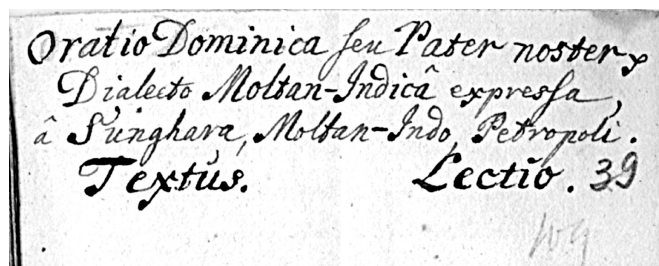 Oratio Dominica seu Pater noster,
Dialecto Moltan-Indicâ expressa,
â Sunghara, Moltan-Indo, Petropoli.
Textus. Lectio. 39